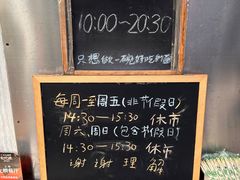 10:00—20:30
只想做一碗好吃的面
每周一至周五(非节假日)
14:30—15:30 休市
周六、周日(包含节假日)
14:30—15:30 休市
谢谢理解